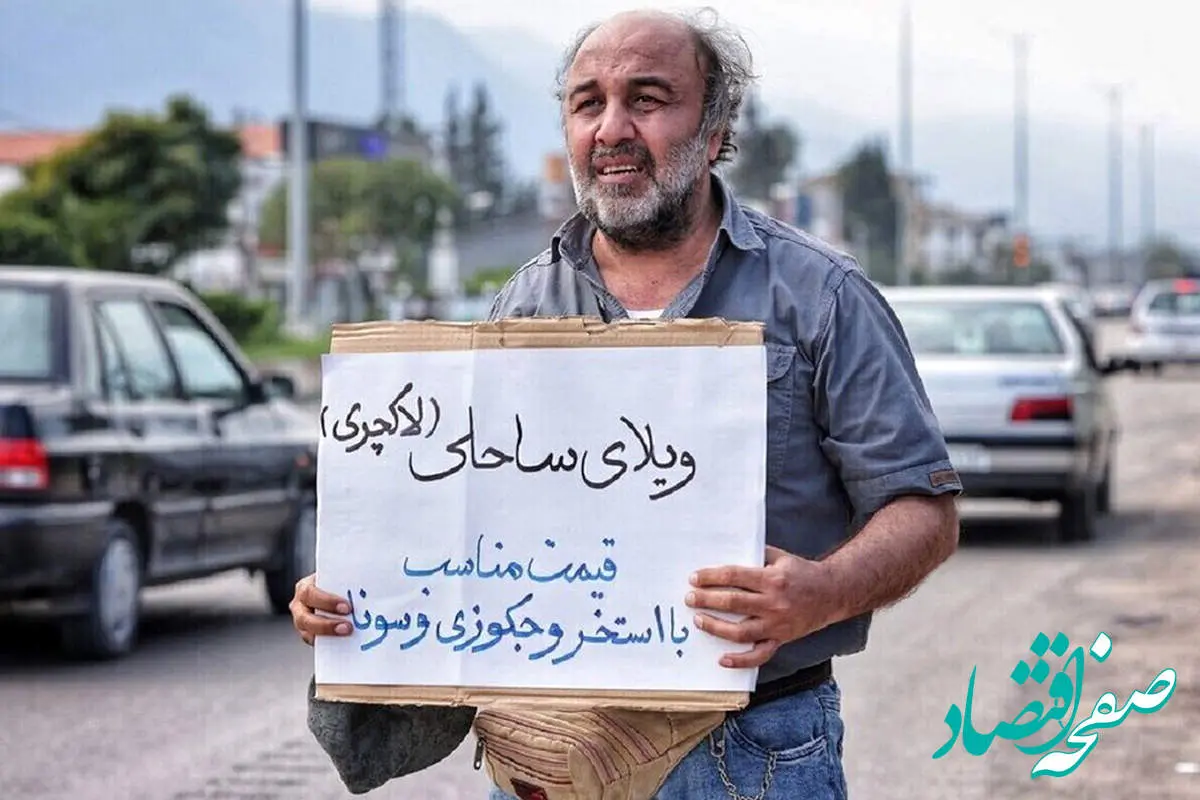 ویلای ساحلی (لاکچری)
قیمت مناسب
با استخر و جکوزی و سونا
صفحه اقتصاد